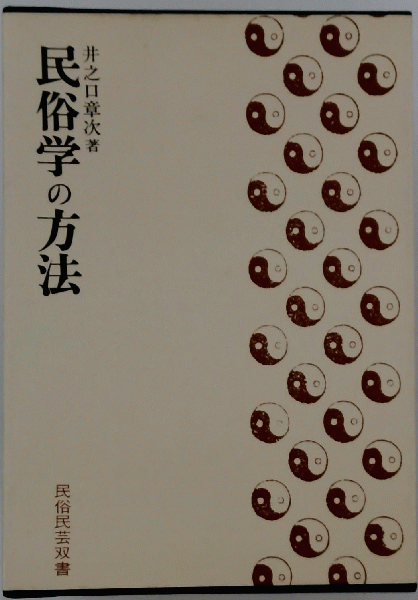 井之口章次著
民俗学の方法
民俗民芸双書